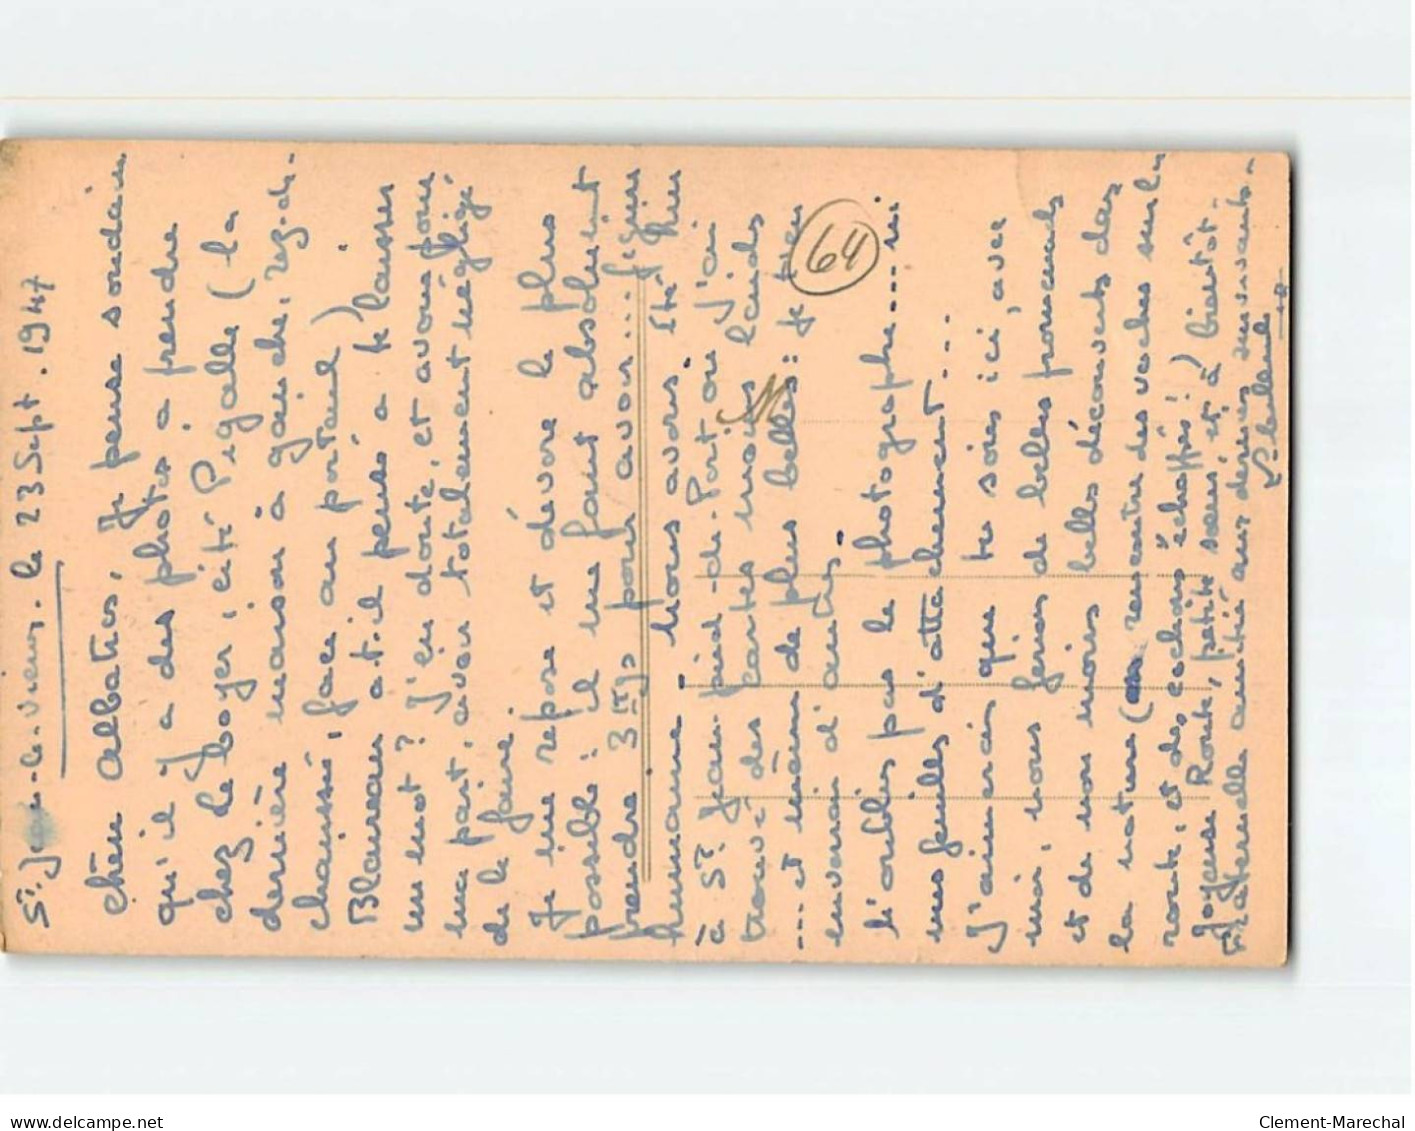 St Jean-le-Vieux. le 23 Sept. 1947
Chère Albatros, Je pense soudain
qu'il y a des photos à prendre
chez Le Boyer, cité Pigalle (la
dernière maison à gauche, rez-de-
chaussée, face au portail)
Blaureau a-t-il pensé à te laisser
un mot ? J'en doute, et avons pour
ma part, avoir totalement négligé
de le faire.
Je me repose et dévore le plus
possible : il me faut absolument
prendre 3 Kgs pour avoir... figure
humaine - Nous avons été hier
à St Jean-pied-de-Port où J'ai
trouvé des cartes moins laides
... et même de plus belles : je t'en
enverrai d'autres -
N'oublie pas le photographe... ni
mes feuilles d'attachement....
J'aimerais que tu sois ici, avec
moi, nous ferions de belles promenades
et de non moins belles découvertes de
la nature ( rencontre des vaches sur la
route, et des cochons échappés !)
Joyeuse Route, petite sœur, et à bientôt -
Fraternelle amitié aux derniers survivants -
64
delcampe.net
Clement-Marechal